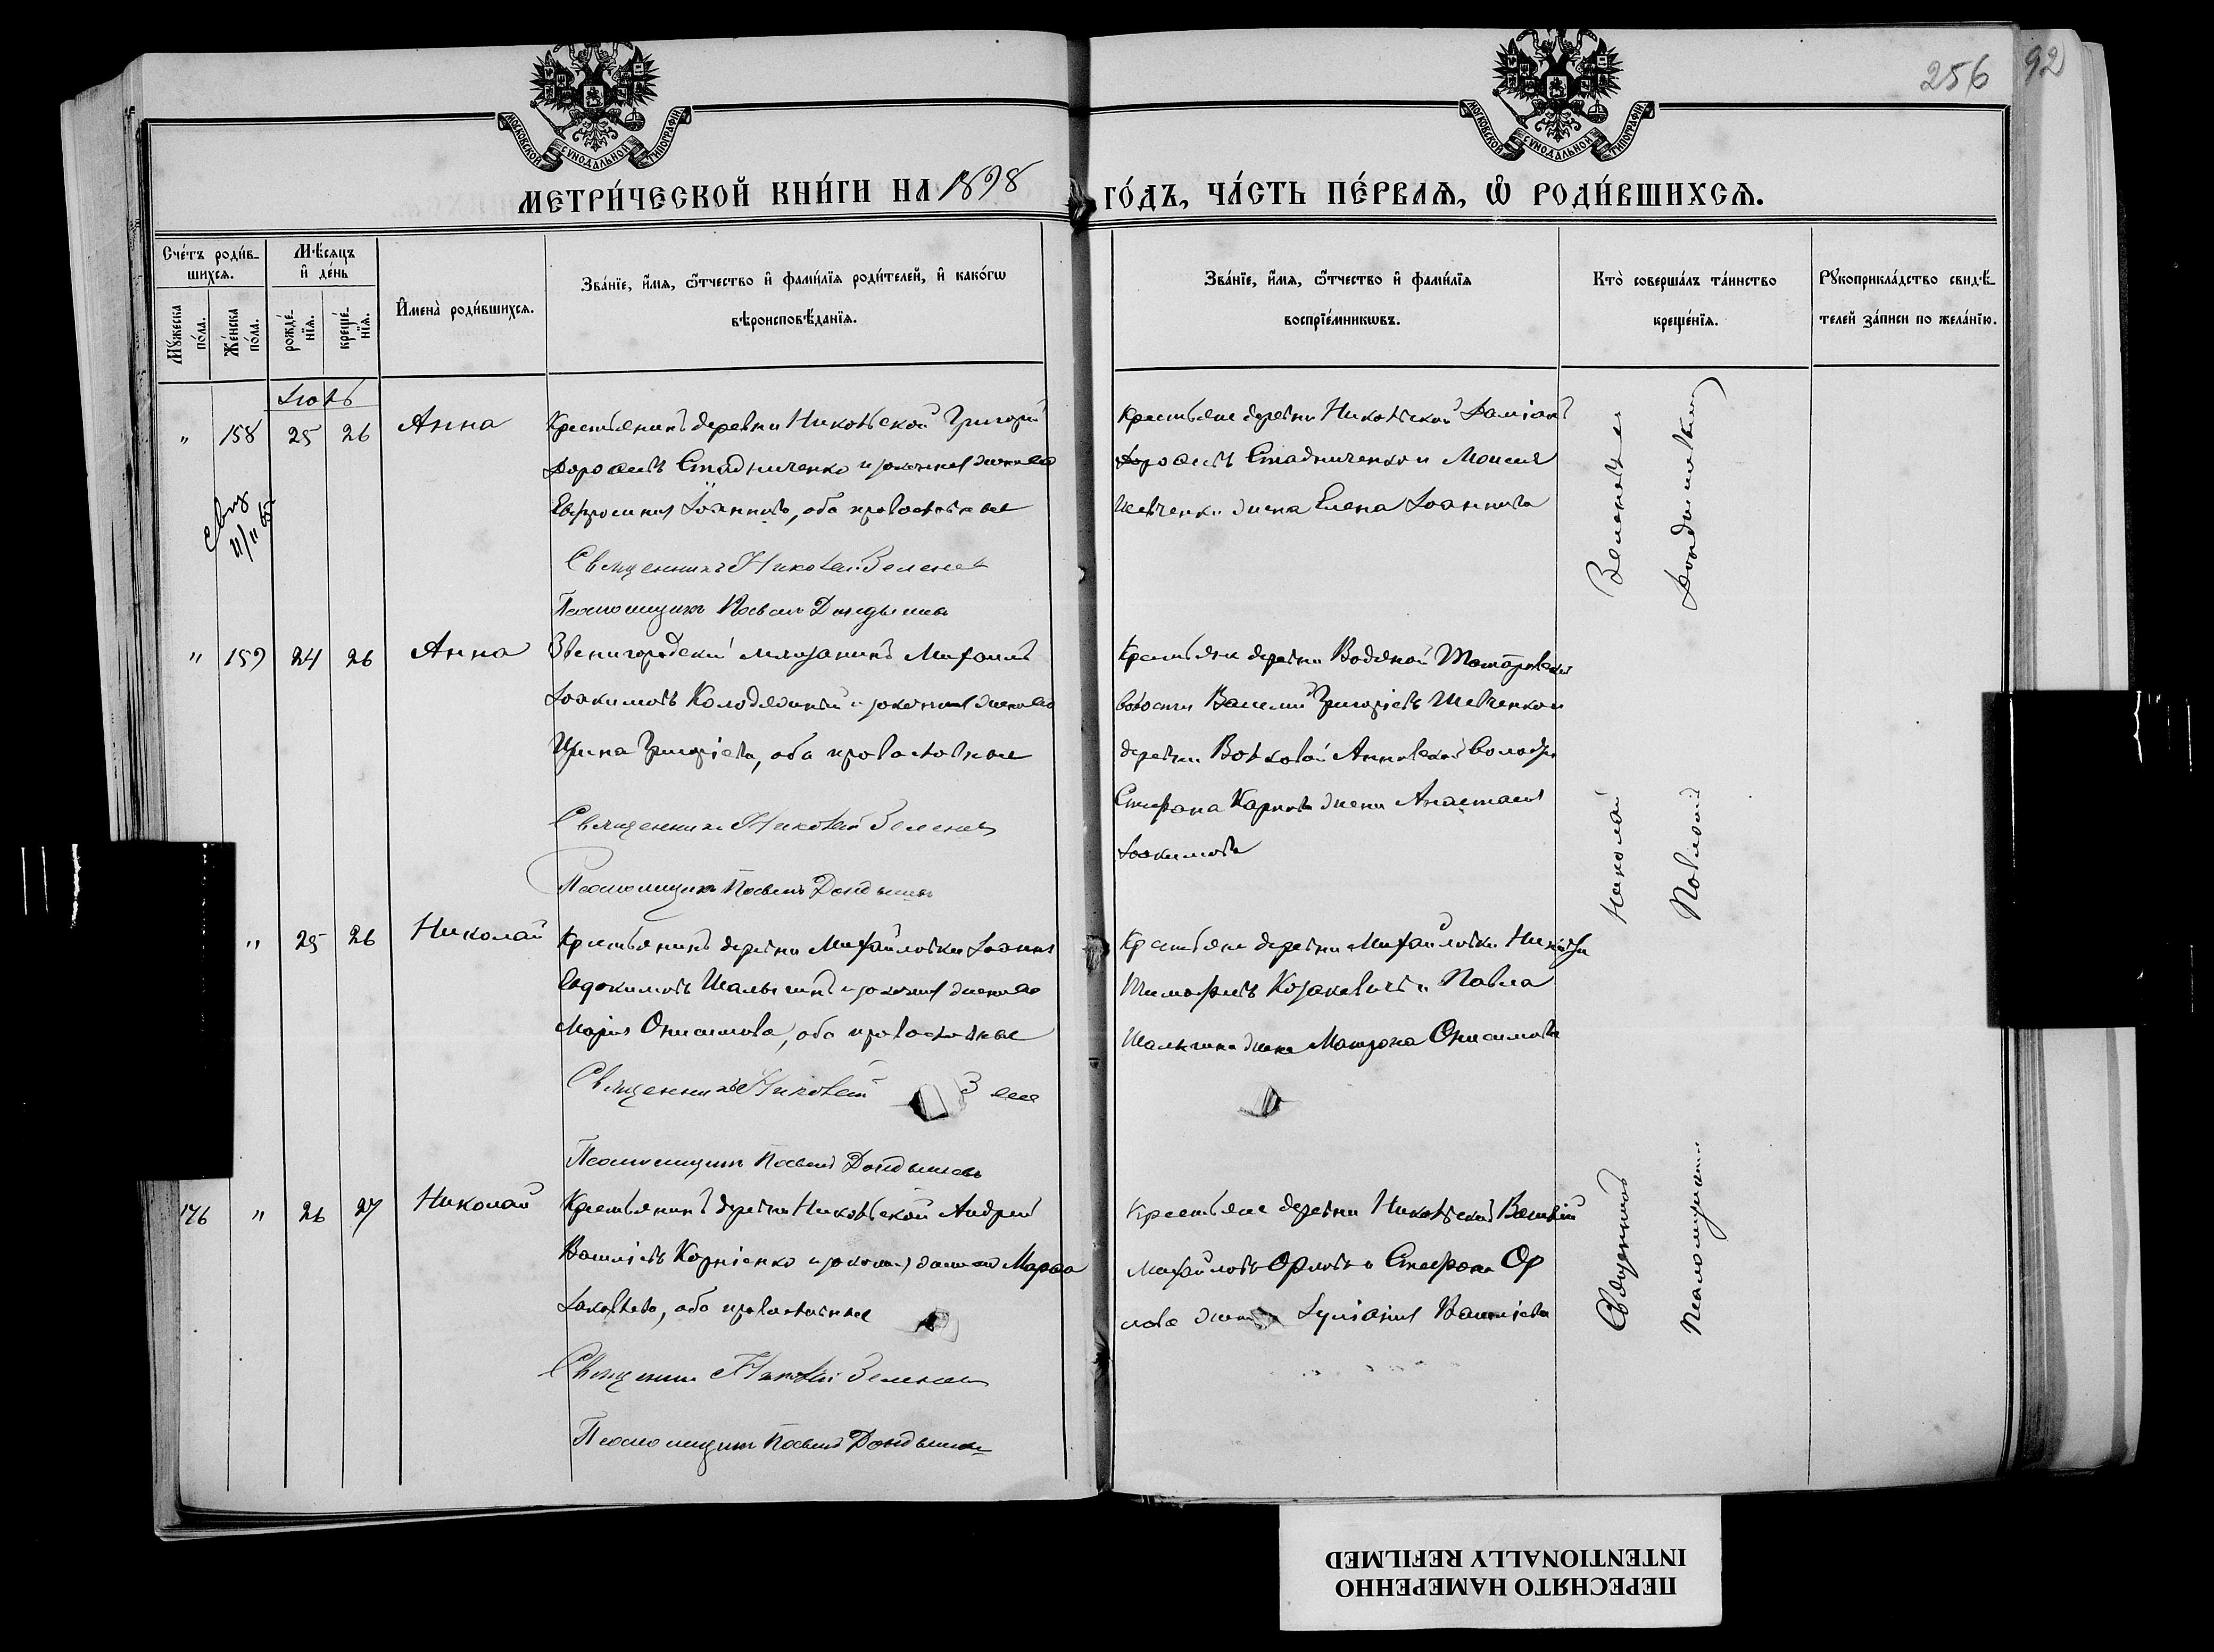 256
92
МОСКОВСКОЙ СѴНОДАЛЬНОЙ ТИПОГРАФІИ
МОСКОВСКОЙ СѴНОДАЛЬНОЙ ТИПОГРАФІИ
МЕТРИ́ЧЕСКОЙ КНИ́ГИ НА 1898 ГО́ДЪ, ЧА́СТЬ ПЕ́РВАѦ, Ѽ РОДИ́ВШИХСѦ.
Сче́тъ роди́в-
шихсѧ.
Мꙋ́жеска по́ла.
Же́нска по́ла.
Мѣ́сѧцъ
и҆ де́нь
рожде́-нїѧ.
креще́-нїѧ.
И҆мена̀ роди́вшихсѧ.
Зва́нїе, и҆́мѧ, ѻ҆́тчество и҆ фами́лїѧ роди́телей, и҆ како́гѡ
вѣроисповѣ́данїѧ.
Зва́нїе, и҆́мѧ, ѻ҆́тчество и҆ фами́лїѧ
воспрїе́мникѡвъ.
Кто̀ соверша́лъ та́инство
креще́нїѧ.
Рꙋкоприкла́дство свидѣ́-
телей за́писи по жела́нїю.
" 158 25 26 Анна
Крестьянинъ деревни Никольской Григорій
Дорофеевъ Стадниченко и законная жена его
Евфросинія Іоаннова, оба православные
Священникъ Николай Зеленев
Псаломщикъ Павелъ
Крестьяне деревни Никольской Даміанъ
Дорофеевъ Стадниченко и Моисея
Шевченко жена Елена Іоаннова
" 159 24 26 Анна
Звенигородский мещанинъ Михаилъ
Іоакимовъ Колодяжный и законная жена его
Ирина Григоріева, оба православные
Священникъ Николай Зеленев
Псаломщикъ Павелъ
Крестьяне деревни Водяной
волости Василій Григоріевъ Шевченко и
деревни Волковой Анновской волости
Стефана Карпова жена Анастасія
Іоакимова
" 25 26 Николай
Крестьянинъ деревни Михайловки Іоаннъ
Евдокимовъ Шалыгинъ и законная жена его
Марія Онисимова, оба православные
Священникъ Николай
Псаломщикъ Павелъ
Крестьяне деревни Михайловки
Тимофеевъ Козакевичъ и Павла
Шалыгина жена Матрона Онисимова
176 " 26 27 Николай
Крестьянинъ деревни Никольской Андрей
Василіевъ Корніенко и законная жена его Марфа
Іаковлева, оба православные
Священникъ Николай Зеленев
Псаломщикъ Павелъ
Крестьяне деревни Никольской Василій
Михайловъ Орловъ и Стефана Ор
лова жена Іуліанія Василіева
Священникъ Николай
Псаломщикъ Павелъ
ПЕРЕСНЯТО НАМЕРЕННО
INTENTIONALLY REFILMED